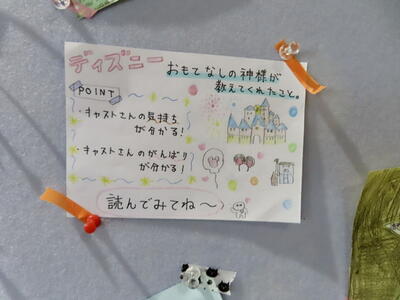 ディズニー おもてなしの神様が
教えてくれたこと。
POINT
・キャストさんの気持ち
が分かる!
・キャストさんのがんばり
が分かる!
読んでみてね〜